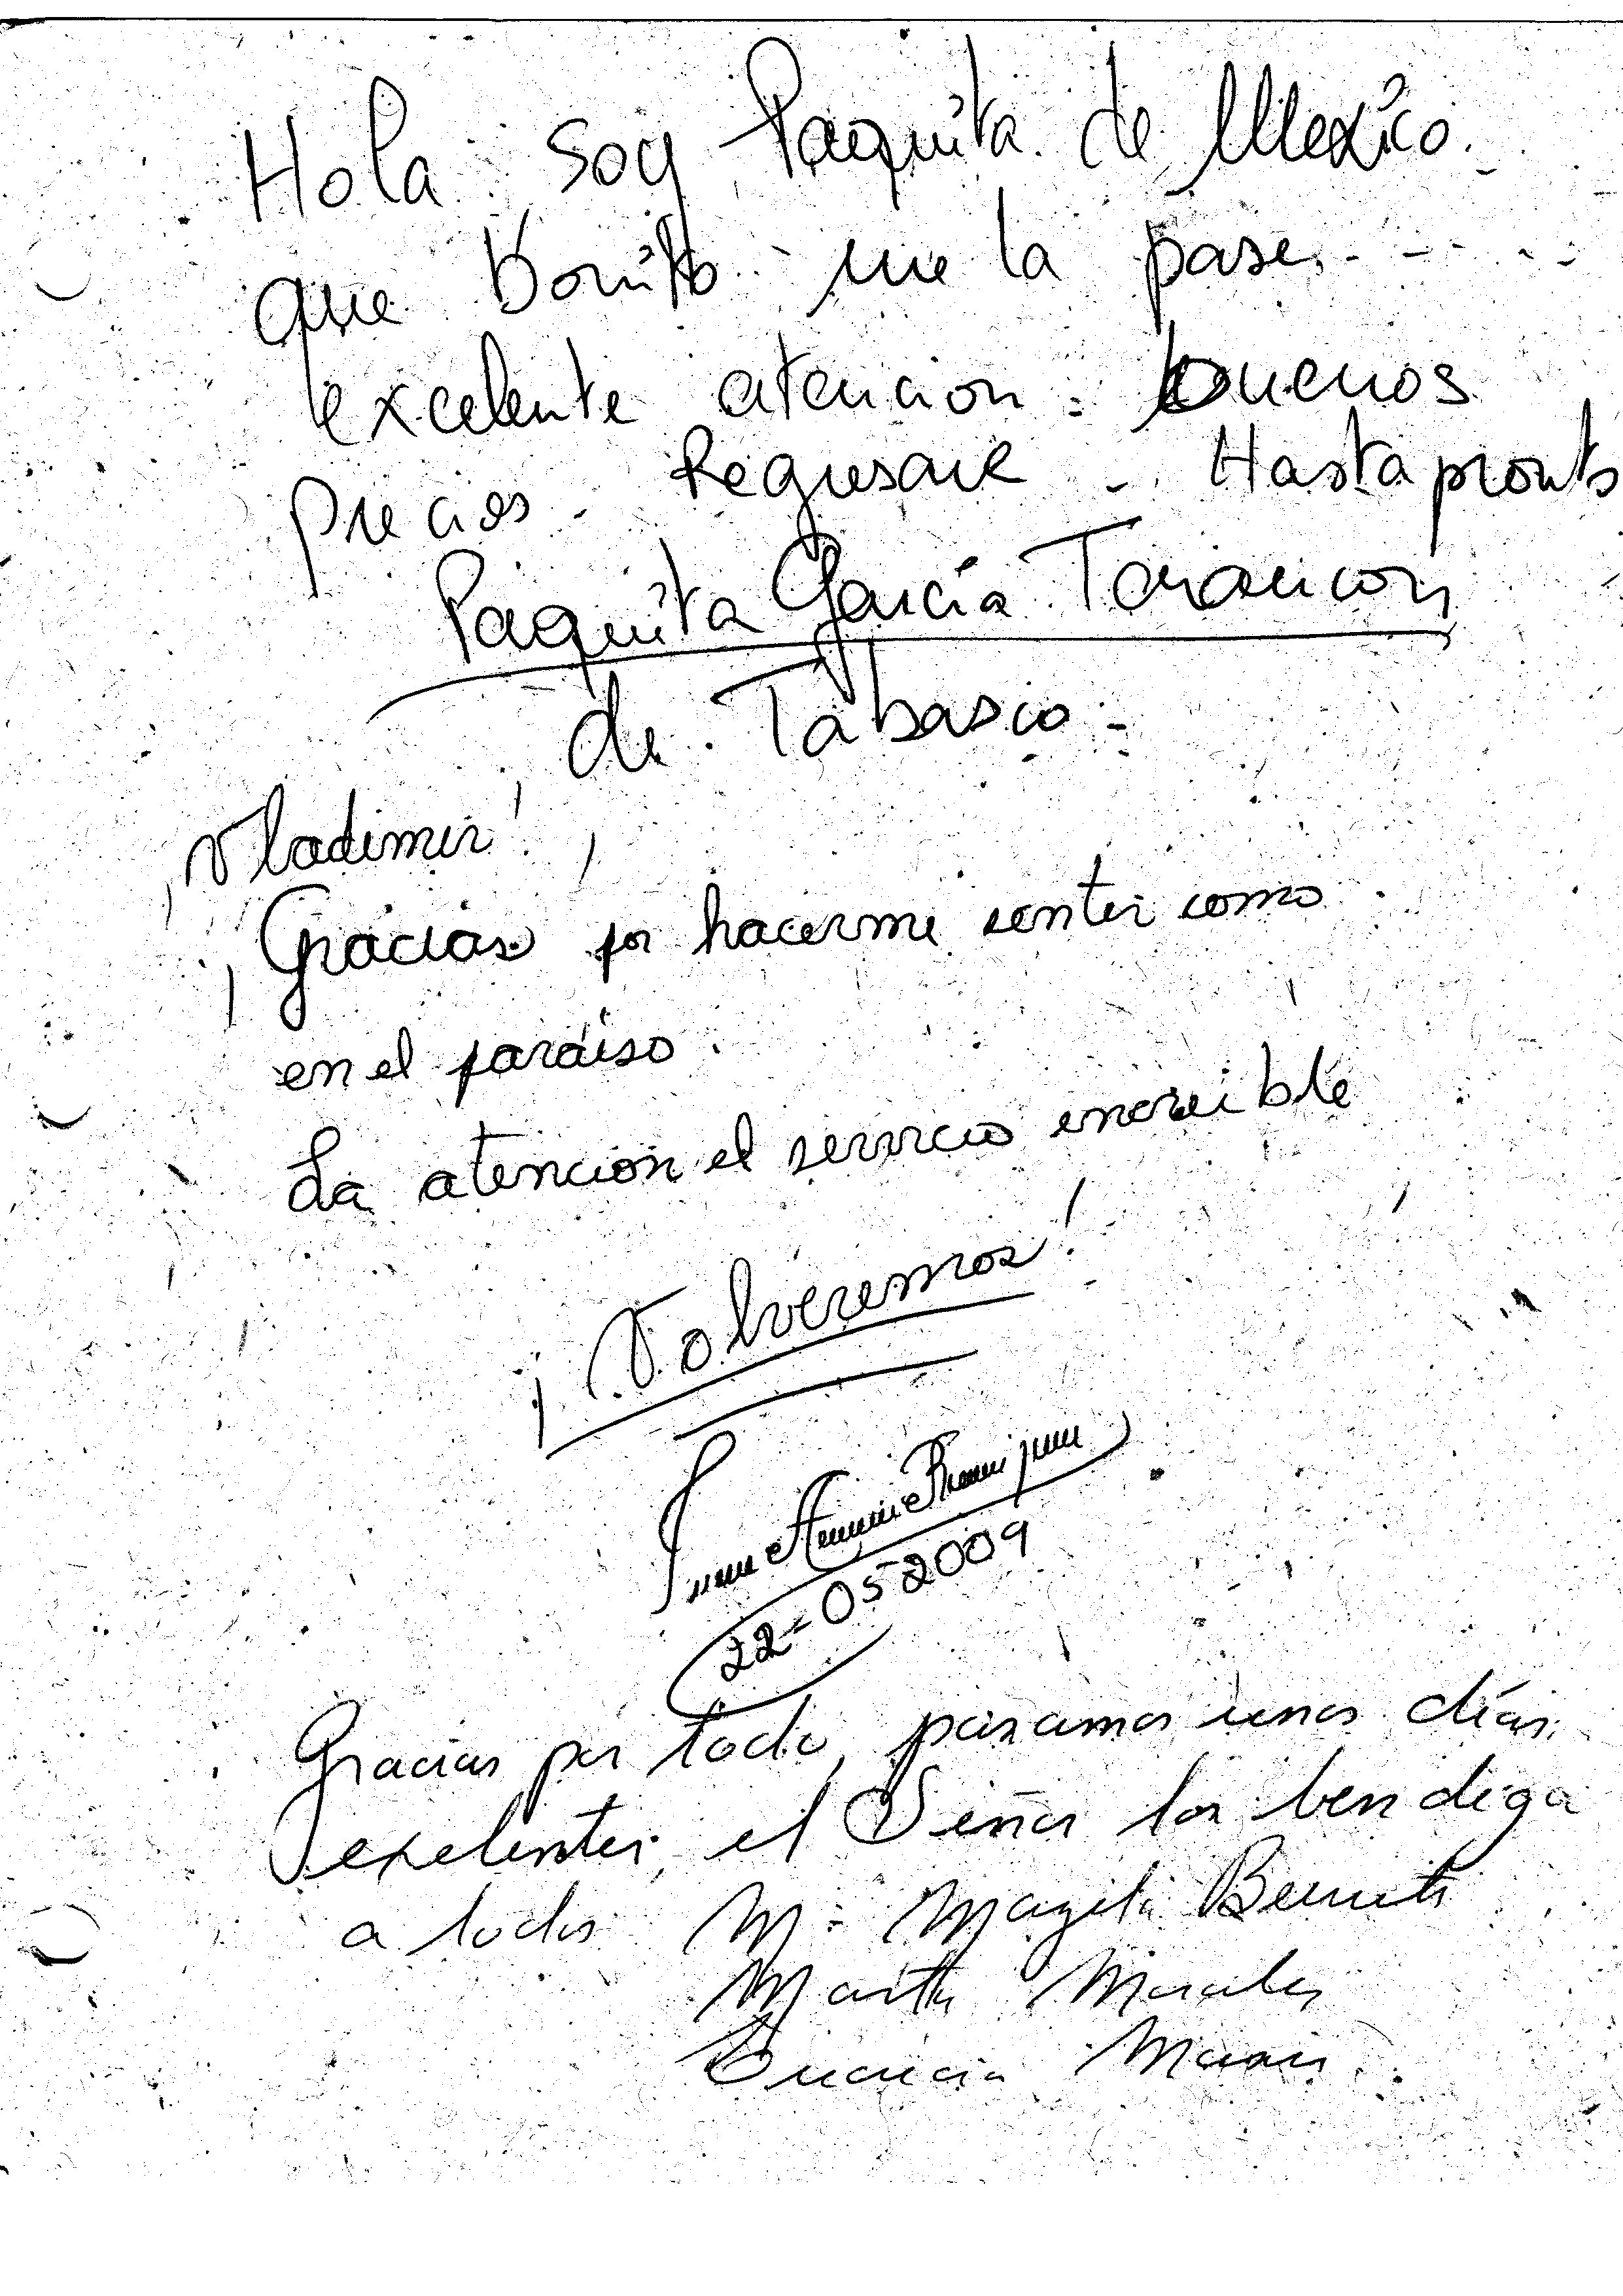 Hola soy Paquita de Mexico.
que Bonito me la pase. - - - -
excelente atencion - buenos
precios - Regresare - Hasta pronto
Paquita García Tarancon
de Tabasco -
¡Vladimir!
¡Gracias por hacerme sentir como
en el paraiso!
La atencion el servicio encreible
¡Volveremos!
22-05-2009
Gracias por todo, pasamos unos días
exelentes, el Señor los bendiga
a todos M. Magela
Martha Morales